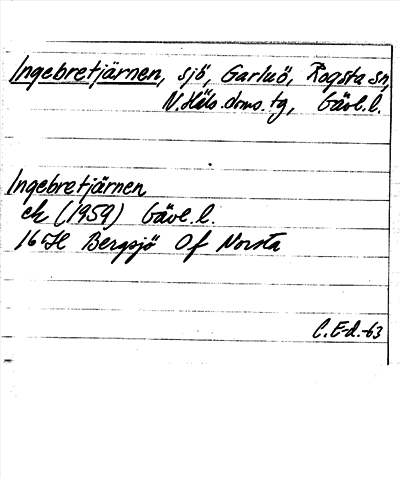 Ingebretjärnen, sjö, Garluö, Rogsta sn,
N. Häls. doms. tg, Gävl. l.
Ingebretjärnen
ek (1959) Gävl. l.
16 H Bergsjö Of Norsta
C. E-d.-63